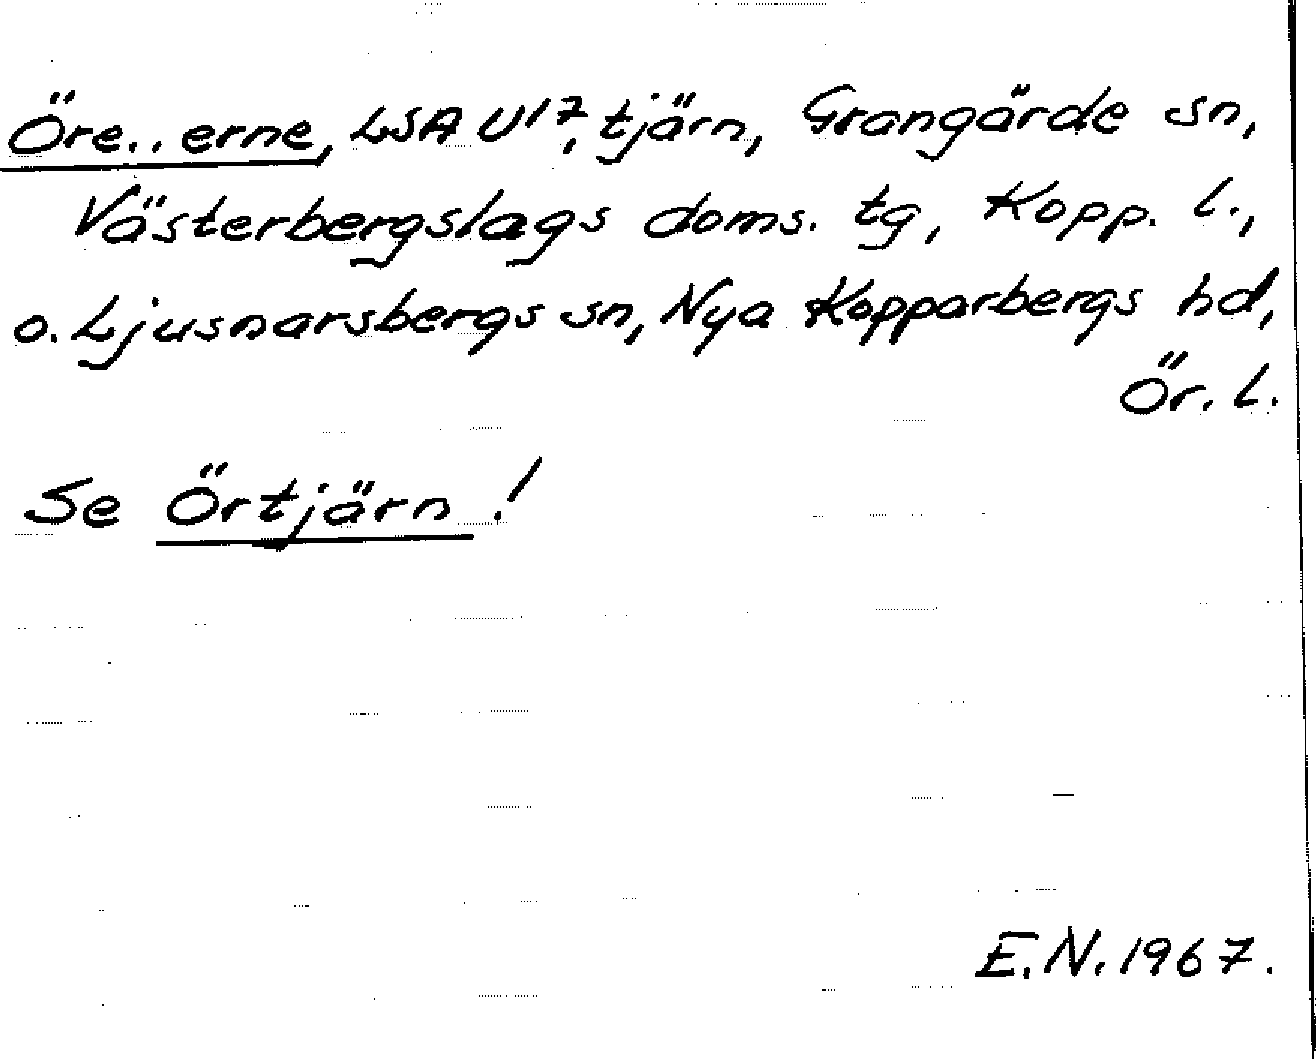 Öre.. erne, LSA U17, tjärn, Grangärde sn,
Västerbergslags doms. tg, Kopp. l.,
o. Ljusnarsbergs sn, Nya Kopparbergs hd,
Ör. l.
Se Örtjärn!
E.N. 1967.